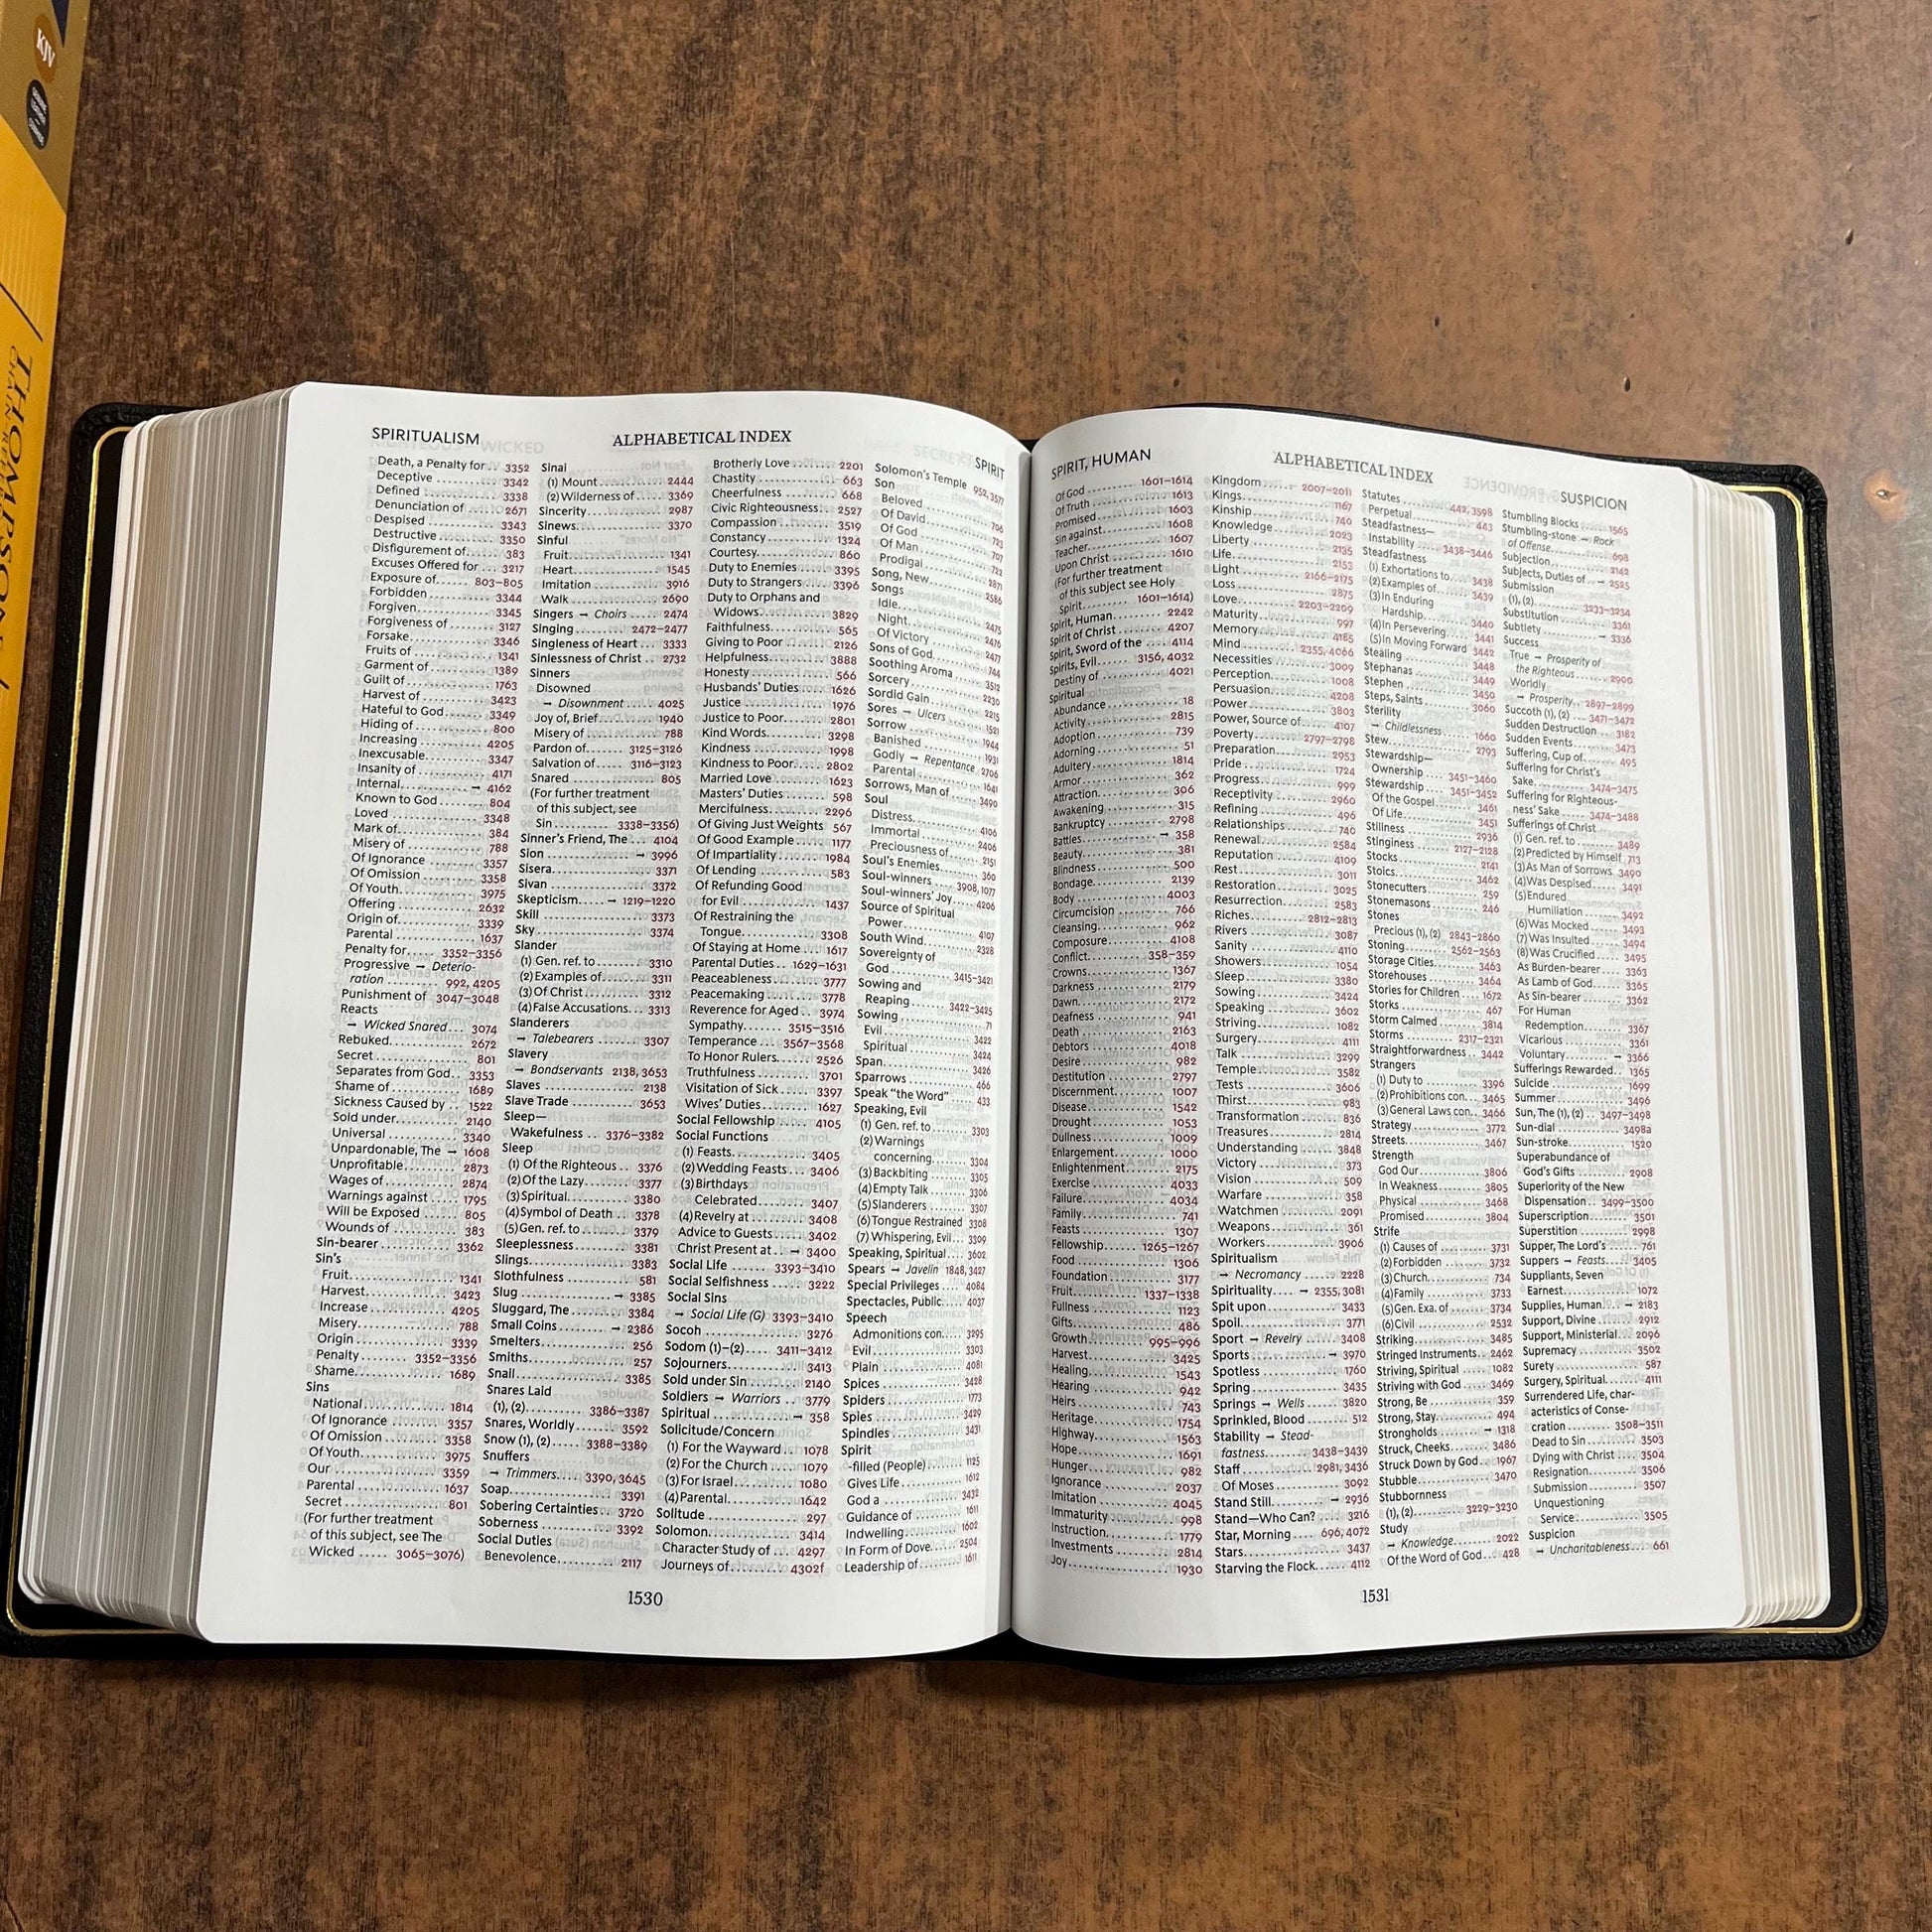 KJV
THOMPSON
SPIRITUALISM
ALPHABETICAL INDEX
SPIRIT
Death, a Penalty for.. 3352
Deceptive ........ 3342
Defined ........ 3338
Denunciation of ..... 2671
Despised ........ 3343
Destructive ........ 3350
Disfigurement of..... 383
Excuses Offered for ... 3217
Exposure of..... 803–805
Forbidden ........ 3344
Forgiven........ 3345
Forgiveness of ...... 3127
Forsake........ 3346
Fruits of ........ 1341
Garment of ........ 1389
Guilt of ........ 1763
Harvest of ........ 3423
Hateful to God ...... 3349
Hiding of ........ 800
Increasing ........ 4205
Inexcusable........ 3347
Insanity of ........ 4171
Internal........ → 4162
Known to God ...... 804
Loved ........ 3348
Mark of........ 384
Misery of ........ 788
Of Ignorance ...... 3357
Of Omission ...... 3358
Of Youth........ 3975
Offering ........ 2632
Origin of........ 3339
Parental ........ 1637
Penalty for..... 3352–3356
Progressive → Deterio-
ration ...... 992, 4205
Punishment of 3047–3048
Reacts
→ Wicked Snared... 3074
Rebuked........ 2672
Secret........ 801
Separates from God.. 3353
Shame of ........ 1689
Sickness Caused by .. 1522
Sold under........ 2140
Universal ........ 3340
Unpardonable, The → 1608
Unprofitable........ 2873
Wages of ........ 2874
Warnings against .... 1795
Will be Exposed ..... 805
Wounds of ........ 383
Sin-bearer ........ 3362
Sin's
Fruit........ 1341
Harvest........ 3423
Increase ........ 4205
Misery........ 788
Origin ........ 3339
Penalty ...... 3352–3356
Shame........ 1689
Sins
National ........ 1814
Of Ignorance ...... 3357
Of Omission ...... 3358
Of Youth........ 3975
Our ........ 3359
Parental ........ 1637
Secret ........ 801
(For further treatment
of this subject, see The
Wicked ..... 3065–3076)
Sinai
(1) Mount ........ 2444
(2) Wilderness of .... 3369
Sincerity........ 2987
Sinews........ 3370
Sinful
Fruit........ 1341
Heart........ 1545
Imitation ........ 3916
Walk ........ 2690
Singers → Choirs .... 2474
Singing........ 2472–2477
Singleness of Heart ... 3333
Sinlessness of Christ .. 2732
Sinners
Disowned
→ Disownment .... 4025
Joy of, Brief........ 1940
Misery of ........ 788
Pardon of...... 3125–3126
Salvation of..... 3116–3123
Snared ........ 805
(For further treatment
of this subject, see
Sin ........ 3338–3356)
Sinner's Friend, The ... 4104
Sion ........ → 3996
Sisera........ 3371
Sivan ........ 3372
Skepticism..... → 1219–1220
Skill ........ 3373
Sky ........ 3374
Slander
(1) Gen. ref. to ...... 3310
(2) Examples of...... 3311
(3) Of Christ ........ 3312
(4) False Accusations... 3313
Slanderers
→ Talebearers ...... 3307
Slavery
→ Bondservants 2138, 3653
Slaves ........ 2138
Slave Trade ........ 3653
Sleep—
Wakefulness .. 3376–3382
Sleep
(1) Of the Righteous .. 3376
(2) Of the Lazy...... 3377
(3) Spiritual........ 3380
(4) Symbol of Death .. 3378
(5) Gen. ref. to...... 3379
Sleeplessness ...... 3381
Slings........ 3383
Slothfulness ........ 581
Slug ........ → 3385
Sluggard, The ...... 3384
Small Coins ...... → 2386
Smelters........ 256
Smiths........ 257
Snail ........ 3385
Snares Laid
(1), (2)........ 3386–3387
Snares, Worldly..... 3592
Snow (1), (2) ..... 3388–3389
Snuffers
→ Trimmers.... 3390, 3645
Soap........ 3391
Sobering Certainties.. 3720
Soberness ........ 3392
Social Duties
Benevolence........ 2117
Brotherly Love ...... 2201
Chastity ........ 663
Cheerfulness ...... 668
Civic Righteousness.. 2527
Compassion ...... 3519
Constancy ........ 1324
Courtesy........ 860
Duty to Enemies .... 3395
Duty to Strangers ... 3396
Duty to Orphans and
Widows........ 3829
Faithfulness........ 565
Giving to Poor ...... 2126
Helpfulness........ 3888
Honesty ........ 566
Husbands' Duties ... 1626
Justice ........ 1976
Justice to Poor...... 2801
Kind Words........ 3298
Kindness ........ 1998
Kindness to Poor..... 2802
Married Love ...... 1623
Masters' Duties ..... 598
Mercifulness........ 2296
Of Giving Just Weights 567
Of Good Example ... 1177
Of Impartiality ..... 1984
Of Lending ........ 583
Of Refunding Good
for Evil ........ 1437
Of Restraining the
Tongue........ 3308
Of Staying at Home .. 1617
Parental Duties .. 1629–1631
Peaceableness ...... 3777
Peacemaking ...... 3778
Reverence for Aged .. 3974
Sympathy...... 3515–3516
Temperance ... 3567–3568
To Honor Rulers..... 2526
Truthfulness ...... 3701
Visitation of Sick .... 3397
Wives' Duties ...... 1627
Social Fellowship ..... 4105
Social Functions
(1) Feasts........ 3405
(2) Wedding Feasts ... 3406
(3) Birthdays
Celebrated...... 3407
(4) Revelry at ...... 3408
Advice to Guests.... 3402
Christ Present at .. → 3400
Social Life ...... 3393–3410
Social Selfishness .... 3222
Social Sins
→ Social Life (G) 3393–3410
Socoh ........ 3276
Sodom (1)–(2)..... 3411–3412
Sojourners........ 3413
Sold under Sin ...... 2140
Soldiers → Warriors ... 3779
Spiritual ........ → 358
Solicitude/Concern
(1) For the Wayward .. 1078
(2) For the Church ... 1079
(3) For Israel........ 1080
(4) Parental........ 1642
Solitude ........ 297
Solomon........ 3414
Character Study of ... 4297
Journeys of........ 4302f
Solomon's Temple 952, 3577
Son
Beloved ........ 706
Of David........ 723
Of God ........ 707
Of Man ........ 722
Prodigal ........ 2871
Song, New........ 2586
Songs
Idle........ 2475
Night........ 2476
Of Victory ........ 2477
Sons of God........ 744
Soothing Aroma ..... 3512
Sorcery........ 2230
Sordid Gain ........ 2215
Sores → Ulcers ...... 1521
Sorrow
Banished ........ 1944
Godly → Repentance 2706
Parental ........ 1641
Sorrows, Man of ..... 3490
Soul
Distress........ 4106
Immortal ........ 2406
Preciousness of...... 2151
Soul's Enemies...... 360
Soul-winners ... 3908, 1077
Soul-winners' Joy..... 4206
Source of Spiritual
Power........ 4107
South Wind........ 2328
Sovereignty of
God ........ 3415–3421
Sowing and
Reaping ...... 3422–3425
Sowing ........ 71
Evil ........ 3422
Spiritual ........ 3424
Span........ 3426
Sparrows........ 466
Speak "the Word"..... 433
Speaking, Evil
(1) Gen. ref. to ...... 3303
(2) Warnings
concerning...... 3304
(3) Backbiting ...... 3305
(4) Empty Talk ...... 3306
(5) Slanderers ...... 3307
(6) Tongue Restrained 3308
(7) Whispering, Evil... 3309
Speaking, Spiritual .... 3602
Spears → Javelin 1848, 3427
Special Privileges ..... 4084
Spectacles, Public..... 4037
Speech
Admonitions con..... 3295
Evil ........ 3303
Plain ........ 4081
Spices ........ 3428
Spiders ........ 1773
Spies ........ 3429
Spindles ........ 3431
Spirit
-filled (People) ...... 1125
Gives Life........ 1612
God a ........ 3432
Guidance of ...... 1611
Indwelling........ 1602
In Form of Dove..... 2504
Leadership of ...... 1611
1530
SPIRIT, HUMAN
ALPHABETICAL INDEX
SUSPICION
Of God ........ 1601–1614
Of Truth ........ 1613
Promised........ 1603
Sin against........ 1608
Teacher........ 1607
Upon Christ ........ 1610
(For further treatment
of this subject see Holy
Spirit........ 1601–1614)
Spirit, Human ...... 2242
Spirit of Christ ...... 4207
Spirit, Sword of the .... 4114
Spirits, Evil...... 3156, 4032
Destiny of ........ 4021
Spiritual
Abundance ........ 18
Activity ........ 2815
Adoption ........ 739
Adorning ........ 51
Adultery ........ 1814
Armor ........ 362
Attraction........ 306
Awakening ........ 315
Bankruptcy ...... 2798
Battles........ → 358
Beauty ........ 381
Blindness ........ 500
Bondage........ 2139
Body ........ 4003
Circumcision ...... 766
Cleansing........ 962
Composure........ 4108
Conflict........ 358–359
Crowns........ 1367
Darkness ........ 2179
Dawn........ 2172
Deafness ........ 941
Death ........ 2163
Debtors ........ 4018
Desire ........ 982
Destitution ........ 2797
Discernment........ 1007
Disease........ 1542
Drought ........ 1053
Dullness ........ 1009
Enlargement ...... 1000
Enlightenment...... 2175
Exercise ........ 4033
Failure........ 4034
Family........ 741
Feasts ........ 1307
Fellowship...... 1265–1267
Food ........ 1306
Foundation ........ 3177
Fruit........ 1337–1338
Fullness ........ 1123
Gifts........ 486
Growth........ 995–996
Harvest ........ 3425
Healing ........ 1543
Hearing ........ 942
Heirs ........ 743
Heritage........ 1754
Highway........ 1563
Hope ........ 1691
Hunger........ 982
Ignorance ........ 2037
Imitation ........ 4045
Immaturity ........ 998
Instruction........ 1779
Investments ...... 2814
Joy ........ 1930
Kingdom...... 2007–2011
Kings........ 1167
Kinship ........ 740
Knowledge ........ 2023
Liberty ........ 2135
Life........ 2153
Light ........ 2166–2175
Loss ........ 2875
Love........ 2203–2209
Maturity ........ 997
Memory ........ 4185
Mind ........ 2355, 4066
Necessities ........ 3009
Perception........ 1008
Persuasion........ 4208
Power........ 3803
Power, Source of..... 4107
Poverty ...... 2797–2798
Preparation ........ 2953
Pride ........ 1724
Progress........ 999
Receptivity ........ 2960
Refining ........ 496
Relationships ...... 740
Renewal........ 2584
Reputation ........ 4109
Rest ........ 3011
Restoration ........ 3025
Resurrection ...... 2583
Riches ........ 2812–2813
Rivers ........ 3087
Sanity ........ 4110
Showers ........ 1054
Sleep ........ 3380
Sowing ........ 3424
Speaking ........ 3602
Striving........ 1082
Surgery........ 4111
Talk ........ 3299
Temple........ 3582
Tests ........ 3606
Thirst........ 983
Transformation ..... 836
Treasures........ 2814
Understanding ..... 3848
Victory ........ 373
Vision ........ 509
Warfare ........ 358
Watchmen ........ 2091
Weapons ........ 361
Workers ........ 3906
Spiritualism
→ Necromancy ..... 2228
Spirituality .... → 2355, 3081
Spit upon ........ 3433
Spoil........ 3771
Sport → Revelry ..... 3408
Sports ........ → 3970
Spotless ........ 1760
Spring ........ 3435
Springs → Wells ...... 3820
Sprinkled, Blood ..... 512
Stability → Stead-
fastness...... 3438–3439
Staff ........ 2981, 3436
Of Moses ........ 3092
Stand Still........ → 2936
Stand—Who Can? .... 3216
Star, Morning .... 696, 4072
Stars ........ 3437
Starving the Flock..... 4112
Statutes ........ 442, 3598
Perpetual ........ 443
Steadfastness—
Instability .... 3438–3446
Steadfastness
(1) Exhortations to.... 3438
(2) Examples of...... 3439
(3) In Enduring
Hardship........ 3440
(4) In Persevering .... 3441
(5) In Moving Forward 3442
Stealing ........ 3448
Stephanas ........ 3449
Stephen ........ 3450
Steps, Saints ........ 3060
Sterility
→ Childlessness .... 1660
Stew........ 2793
Stewardship—
Ownership .... 3451–3460
Stewardship .... 3451–3452
Of the Gospel ...... 3461
Of Life........ 3451
Stillness ........ 2936
Stinginess ...... 2127–2128
Stocks........ 2141
Stoics........ 3462
Stonecutters ...... 259
Stonemasons ...... 246
Stones
Precious (1), (2) 2843–2860
Stoning ........ 2562–2563
Storage Cities........ 3463
Storehouses........ 3464
Stories for Children ... 1672
Storks ........ 467
Storm Calmed ...... 3814
Storms ........ 2317–2321
Straightforwardness .. 3442
Strangers
(1) Duty to ........ 3396
(2) Prohibitions con.... 3465
(3) General Laws con... 3466
Strategy ........ 3772
Streets........ 3467
Strength
God Our ........ 3806
In Weakness ...... 3805
Physical ........ 3468
Promised........ 3804
Strife
(1) Causes of ........ 3731
(2) Forbidden ...... 3732
(3) Church........ 734
(4) Family........ 3733
(5) Gen. Exa. of...... 3734
(6) Civil ........ 2532
Striking........ 3485
Stringed Instruments.. 2462
Striving, Spiritual .... 1082
Striving with God ..... 3469
Strong, Be ........ 359
Strong, Stay ........ 494
Strongholds ...... → 1318
Struck, Cheeks ...... 3486
Struck Down by God.. 1967
Stubble ........ 3470
Stubbornness
(1), (2)........ 3229–3230
Study
→ Knowledge...... 2022
Of the Word of God... 428
Stumbling Blocks ..... 1565
Stumbling-stone → Rock
of Offense........ 698
Subjection........ 2142
Subjects, Duties of .. → 2525
Submission
(1), (2)........ 3233–3234
Substitution ...... 3361
Subtlety ........ → 3336
Success
True → Prosperity of
the Righteous ..... 2900
Worldly
→ Prosperity.. 2897–2899
Succoth (1), (2) .... 3471–3472
Sudden Destruction ... 3182
Sudden Events ...... 3473
Suffering, Cup of..... 495
Suffering for Christ's
Sake........ 3474–3475
Suffering for Righteous-
ness' Sake ..... 3474–3488
Sufferings of Christ
(1) Gen. ref. to ...... 3489
(2) Predicted by Himself 713
(3) As Man of Sorrows 3490
(4) Was Despised ..... 3491
(5) Endured
Humiliation ..... 3492
(6) Was Mocked ..... 3493
(7) Was Insulted ..... 3494
(8) Was Crucified .... 3495
As Burden-bearer ... 3363
As Lamb of God..... 3365
As Sin-bearer ...... 3362
For Human
Redemption...... 3367
Vicarious ........ 3361
Voluntary ...... → 3366
Sufferings Rewarded.. 1365
Suicide ........ 1699
Summer ........ 3496
Sun, The (1), (2) .. 3497–3498
Sun-dial ........ 3498a
Sun-stroke........ 1520
Superabundance of
God's Gifts ...... 2908
Superiority of the New
Dispensation .. 3499–3500
Superscription...... 3501
Superstition ...... 2998
Supper, The Lord's ... 761
Suppers → Feasts..... 3405
Suppliants, Seven
Earnest........ 1072
Supplies, Human... → 2183
Support, Divine ..... 2912
Support, Ministerial... 2096
Supremacy ........ 3502
Surety ........ 587
Surgery, Spiritual..... 4111
Surrendered Life, char-
acteristics of Conse-
cration ...... 3508–3511
Dead to Sin........ 3503
Dying with Christ ... 3504
Resignation........ 3506
Submission ........ 3507
Unquestioning
Service ........ 3505
Suspicion
→ Uncharitableness... 661
1531